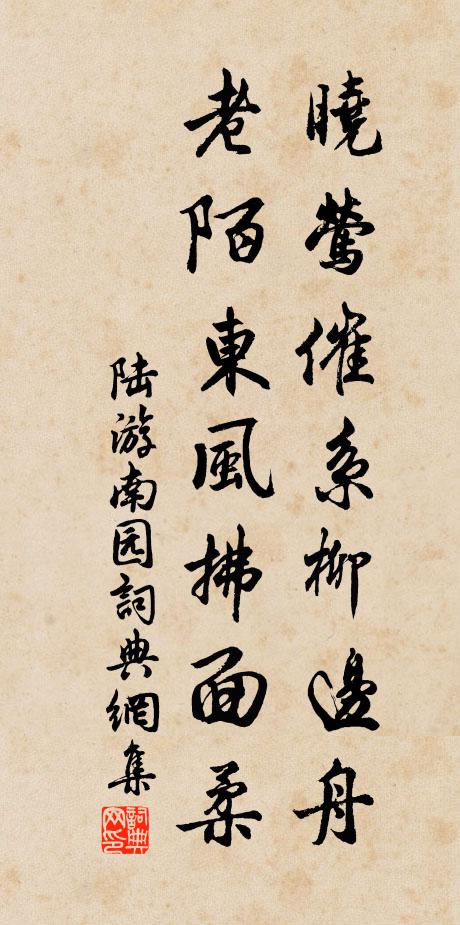 曉鶯催系柳邊舟
巷陌東風拂面柔
陸游南园詞典網集
詞典网印